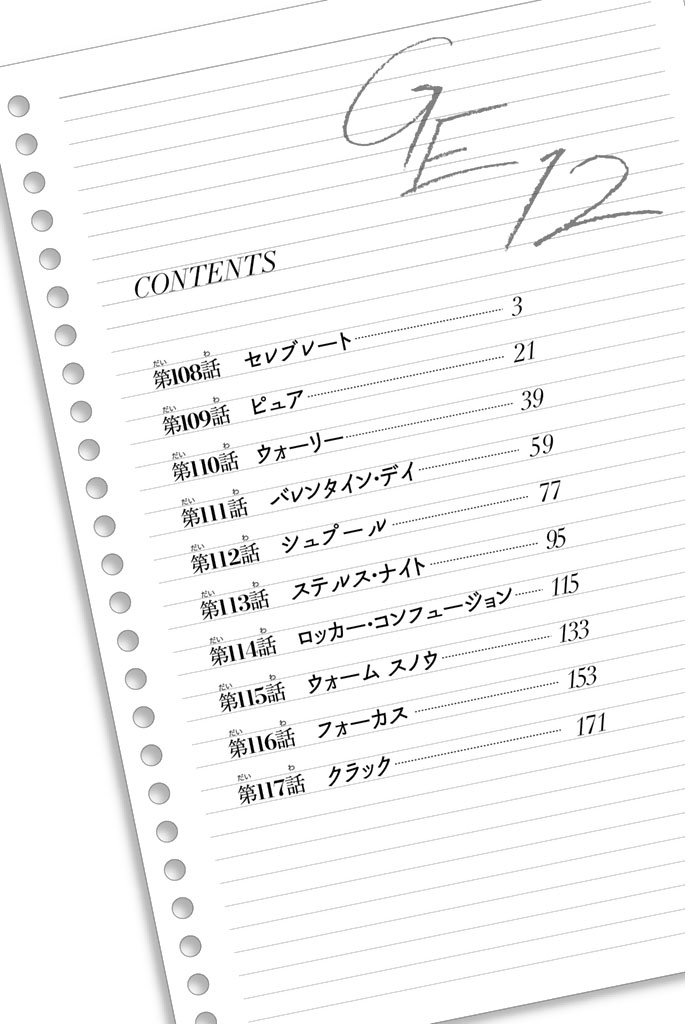 GE
12
CONTENTS
第108話 セレブレート 3
第109話 ピュア 21
第110話 ウォーリー 39
第111話 バレンタイン・デイ 59
第112話 シュプール 77
第113話 ステルス・ナイト 95
第114話 ロッカー・コンフュージョン 115
第115話 ウォーム スノウ 133
第116話 フォーカス 153
第117話 クラック 171